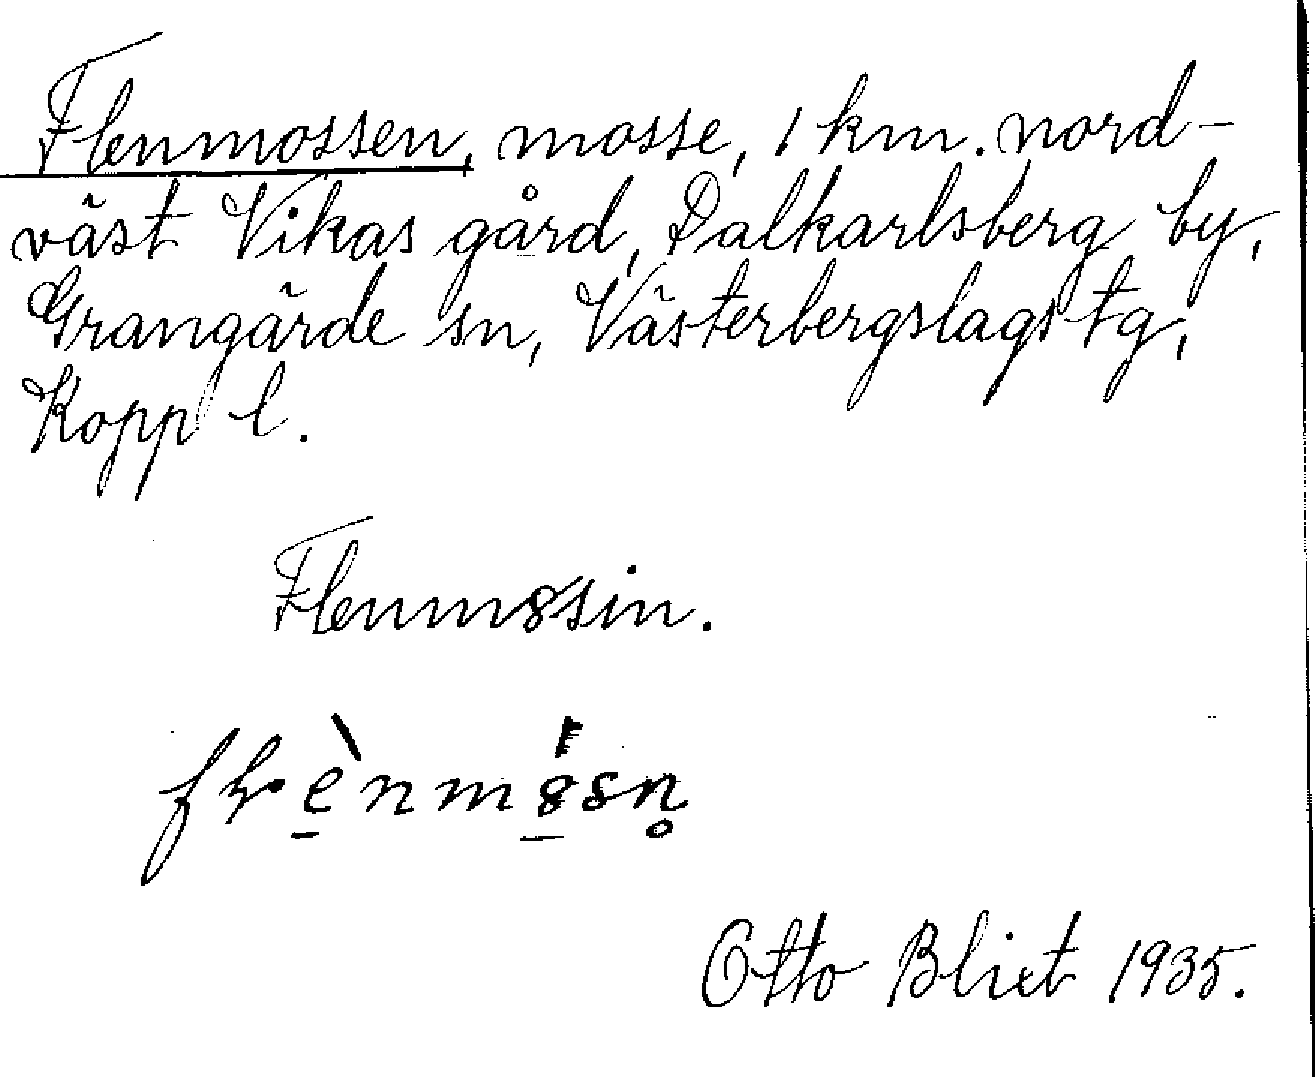 Flenmossen, mosse, 1 km. nord-
väst Vikas gård, Dalkarlsberg by,
Grangärde sn, Västerbergslags tg,
Kopp l.
Flenm8sin.
Otto Blixt 1935.